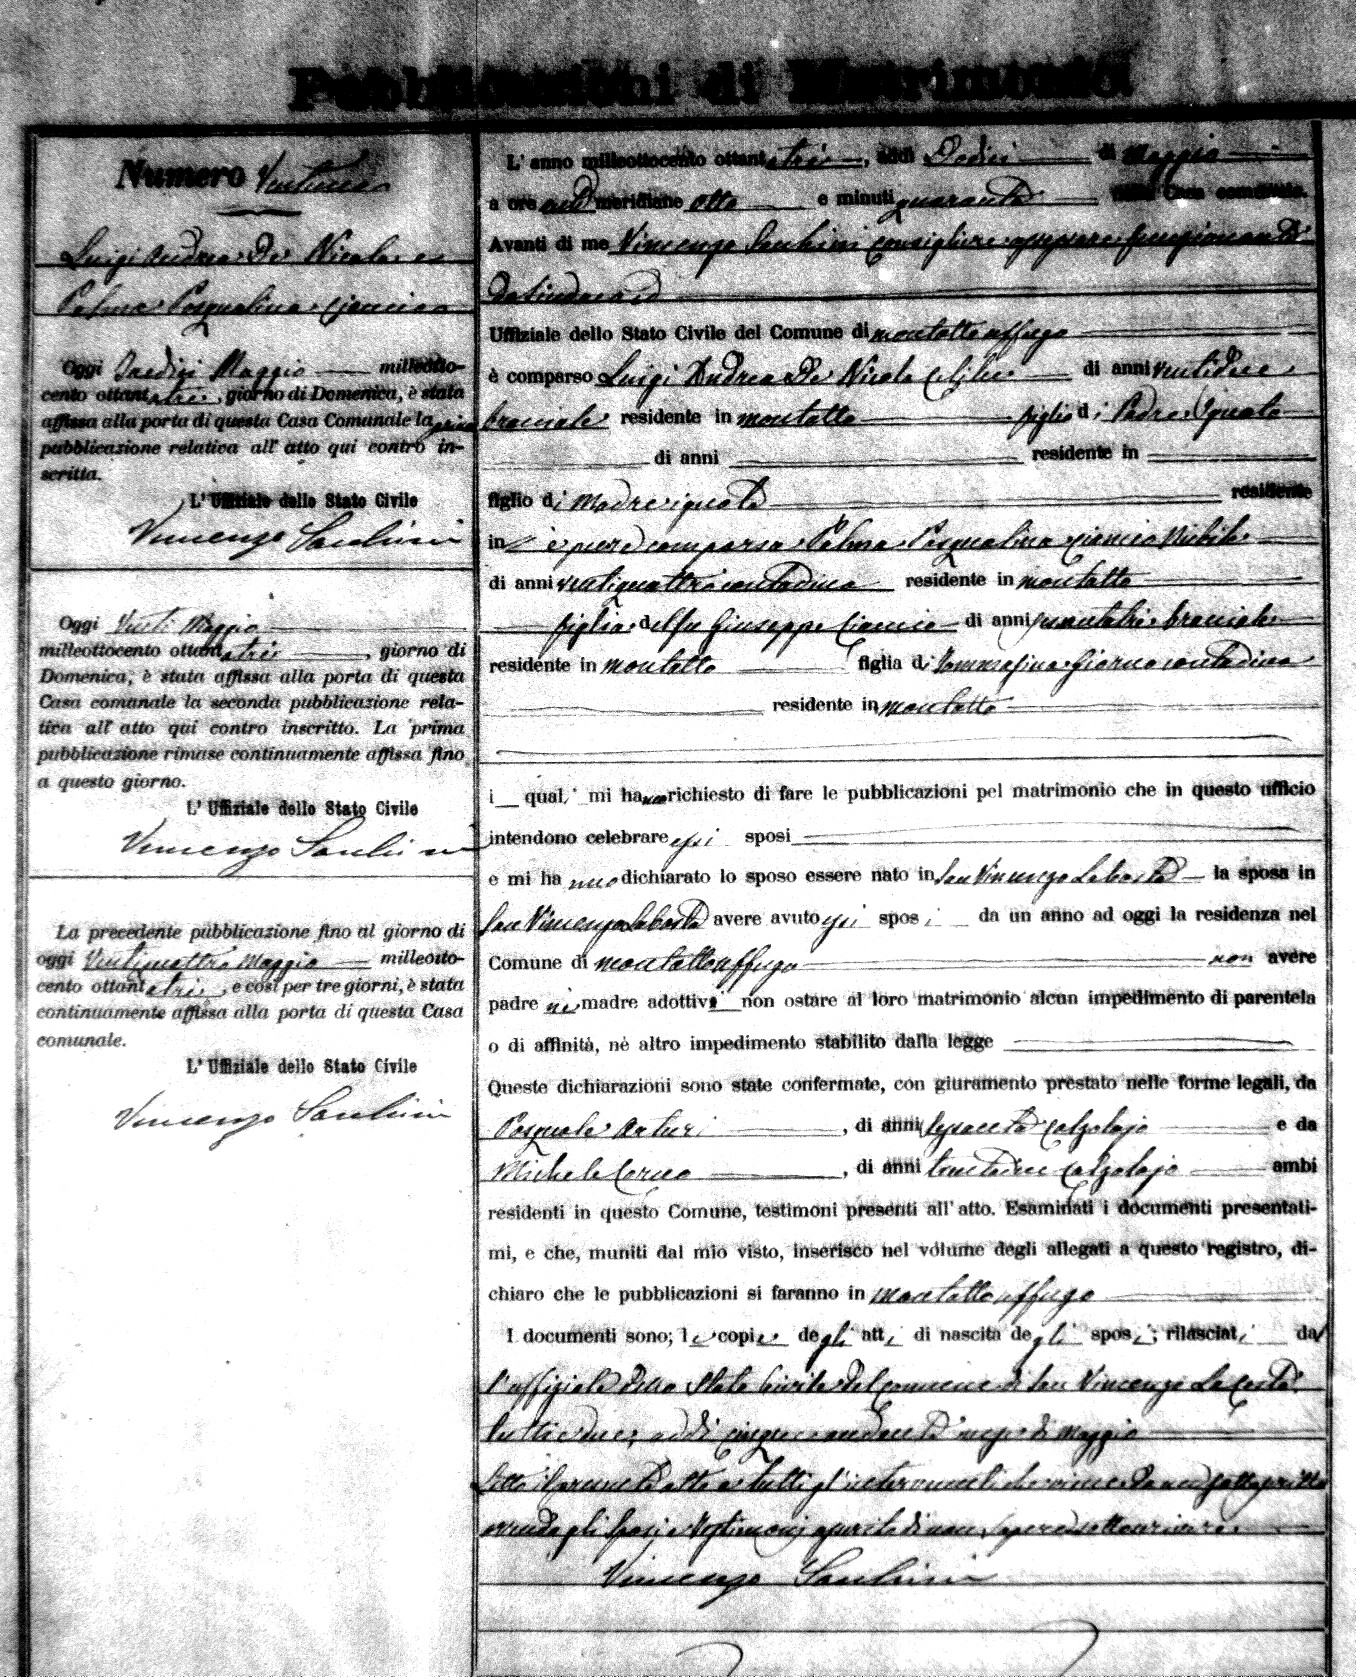 Pubblicazioni di Matrimonio
Numero
Luigi Andrea De Nicola e
Palma Pasqualina Ciancio
Oggi Tredici Maggio milleotto-
cento ottantatre, giorno di Domenica, è stata
affissa alla porta di questa Casa Comunale la prima
pubblicazione relativa all' atto qui contro in-
scritta.
L' Uffiziale dello Stato Civile
Vincenzo
Oggi Venti Maggio
milleottocento ottantatre, giorno di
Domenica, è stata affissa alla porta di questa
Casa comunale la seconda pubblicazione rela-
tiva all' atto qui contro inscritto. La prima
pubblicazione rimase continuamente affissa fino
a questo giorno.
L' Uffiziale dello Stato Civile
Vincenzo
La precedente pubblicazione fino al giorno di
oggi Ventiquattro Maggio milleotto-
cento ottantatre, e così per tre giorni, è stata
continuamente affissa alla porta di questa Casa
comunale.
L' Uffiziale dello Stato Civile
Vincenzo
L' anno milleottocento ottantatre, addì Dodici di Maggio
a ore meridiane otto e minuti quaranta nella Casa comunale.
Avanti di me Vincenzo consigliere funzionante
da Sindaco
Uffiziale dello Stato Civile del Comune di Montalto Uffugo
è comparso Luigi Andrea De Nicola celibe di anni ventidue
bracciale residente in Montalto figlio di Padre ignoto
di anni residente in
figlio di Madre ignota residente
in è pure comparsa Palma Pasqualina Ciancio Nubile
di anni ventiquattro contadina residente in Montalto
figlia del fu Giuseppe Ciancio di anni bracciale
residente in Montalto figlia di Tommasina contadina
residente in Montalto
i quali mi hanno richiesto di fare le pubblicazioni pel matrimonio che in questo ufficio
intendono celebrare essi sposi
e mi hanno dichiarato lo sposo essere nato in San Vincenzo La Costa la sposa in
San Vincenzo La Costa avere avuto essi sposi da un anno ad oggi la residenza nel
Comune di Montalto Uffugo non avere
padre nè madre adottivi non ostare al loro matrimonio alcun impedimento di parentela
o di affinità, nè altro impedimento stabilito dalla legge
Queste dichiarazioni sono state confermate, con giuramento prestato nelle forme legali, da
Pasquale Anturi, di anni sessanta calzolajo e da
Michele, di anni calzolajo ambi
residenti in questo Comune, testimoni presenti all' atto. Esaminati i documenti presentati-
mi, e che, muniti dal mio visto, inserisco nel volume degli allegati a questo registro, di-
chiaro che le pubblicazioni si faranno in Montalto Uffugo
I documenti sono; le copie degli atti di nascita degli sposi; rilasciati dal
l'uffiziale dello Stato Civile del comune di San Vincenzo La Costa
tutti e due, addì cinque andante mese di Maggio
Letto il presente atto a tutti gl'intervenuti
avendo gli sposi e testimoni di non sapere sottoscrivere
Vincenzo